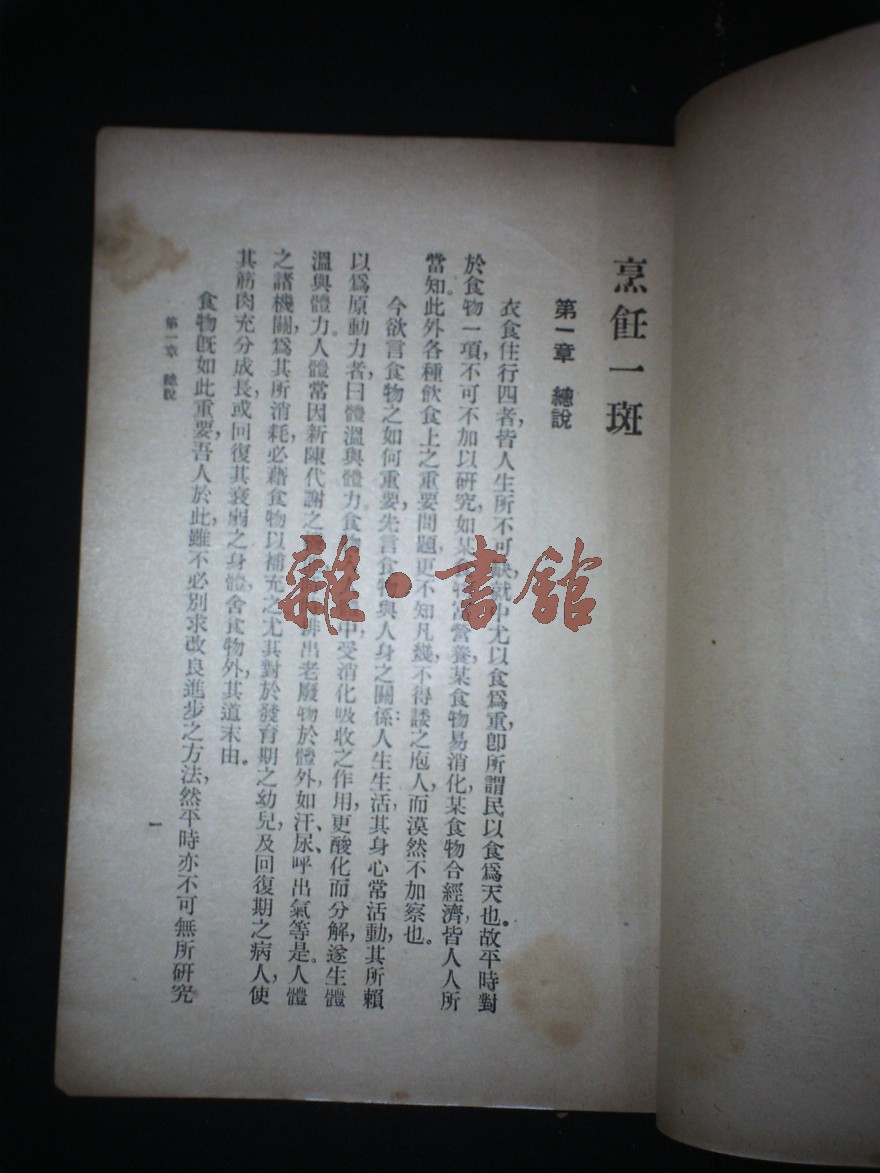 烹飪一斑
第一章 總說
衣食住行四者,皆人生所不可缺,就中尤以食爲重,卽所謂民以食爲天也。故平時對
於食物一項,不可不加以研究,如某食物富營養,某食物易消化,某食物合經濟,皆人人所
當知。此外各種飲食上之重要問題,更不知凡幾,不得諉之庖人,而漠然不加察也。
今欲言食物之如何重要,先言食物與人身之關係:人生生活,其身心常活動,其所賴
以爲原動力者,曰體溫與體力。食物中,受消化吸收之作用,更酸化而分解,遂生體
溫與體力。人體常因新陳代謝之排出老廢物於體外,如汗、尿、呼出氣等是。人體
之諸機關,爲其所消耗,必藉食物以補充之,尤其對於發育期之幼兒,及回復期之病人,使
其筋肉充分成長,或回復其衰弱之身體,舍食物外,其道末由。
食物旣如此重要,吾人於此,雖不必別求改良進步之方法,然平時亦不可無所研究
第一章 總說
一
雜·書館